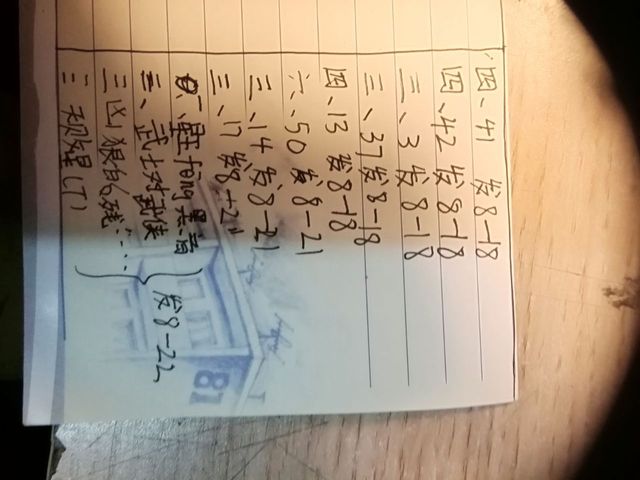 四、41 发8-18
四、42 发8-18
二、3 发8-18
三、37发8-18
四、13 发8-18
六、50 发8-21
三、14 发8-21
三、17 发8-21
六、 fēng 景音
三、武士对武侠
三 凶狠的残…… 发8-22
三 规矩(T)
81